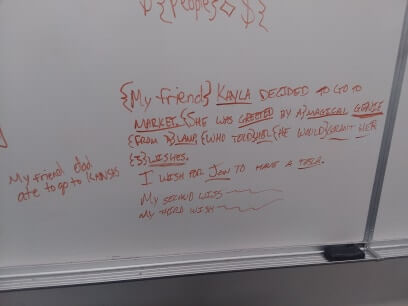 ${People}◇${
{My friend} KAYLA DECIDED TO GO TO
MARKET. {SHE WAS GREETED BY A} MAGICAL GENIE
{FROM A} LAMP, {WHO TOLD} HER {HE WOULD} GRANT HER
{3} WISHES.
I WISH FOR JON TO HAVE A TESLA.
MY SECOND WISH
MY THIRD WISH
My friend
ate to go to KANSAS